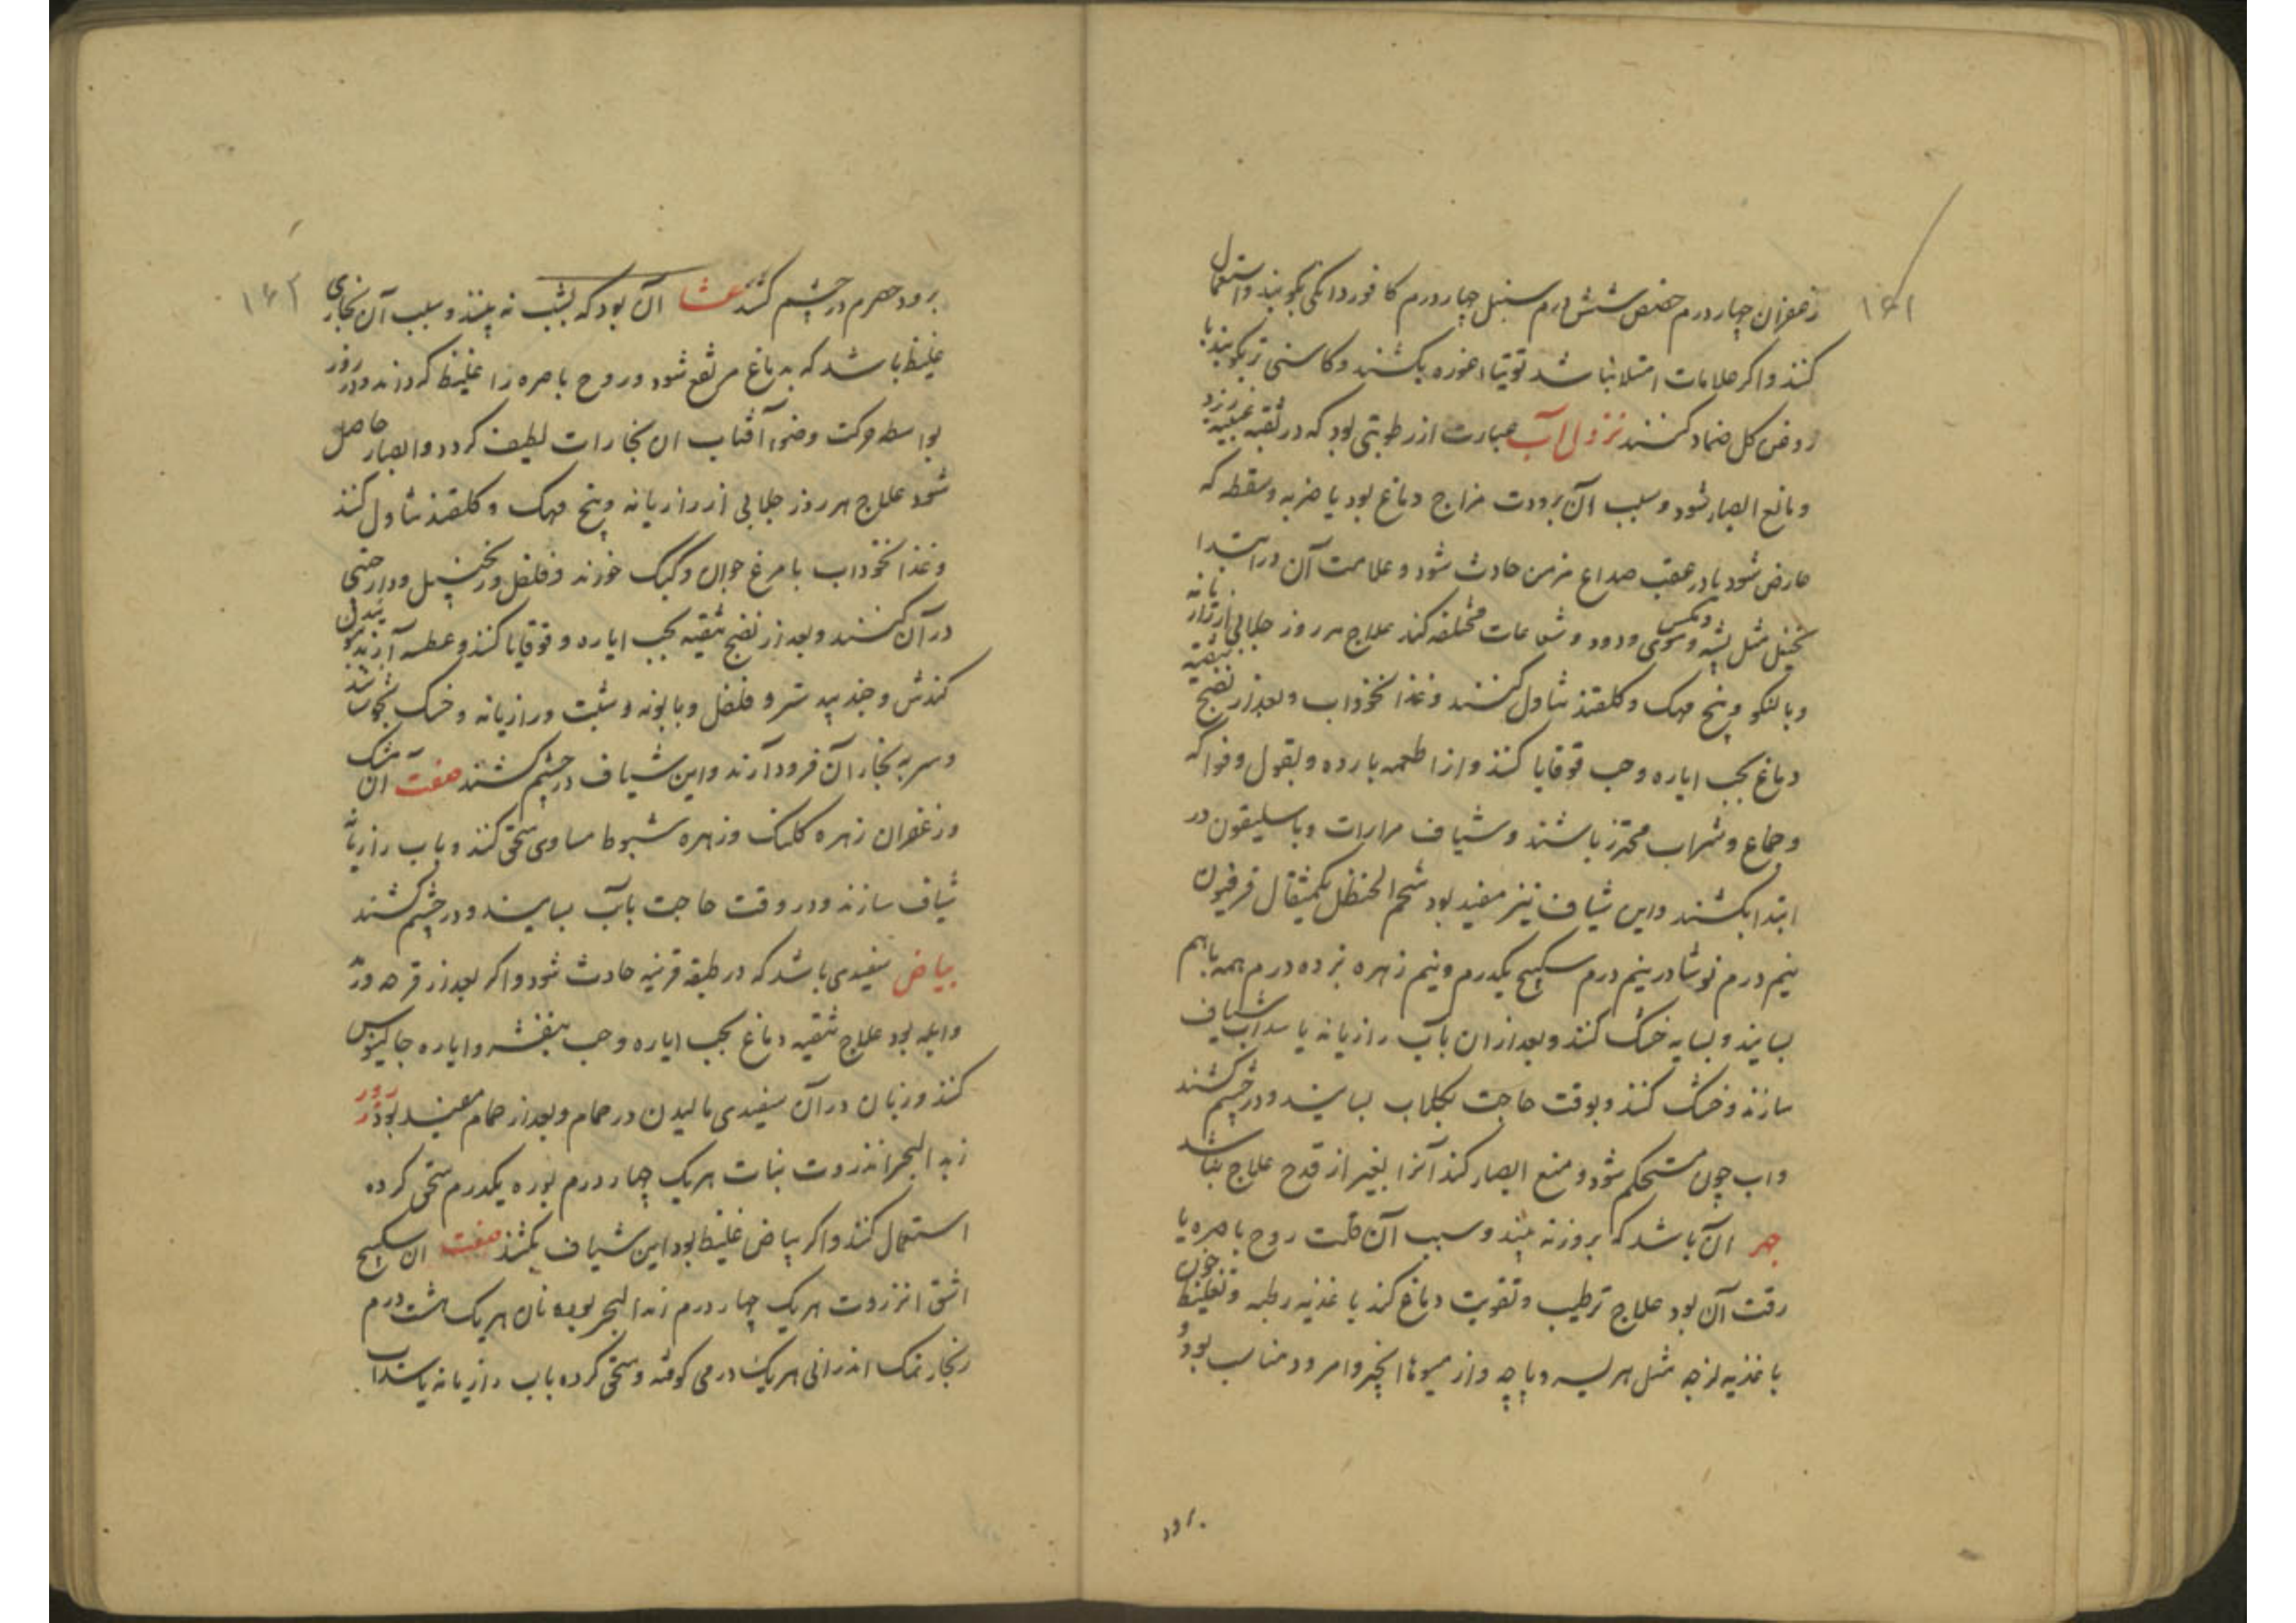 ۱۶۱
زعفران چهار درم حضض شش درم سنبل چهار درم کافور دانکی بکوبند و استعمال
کنند و اکر علامات امتلا نباشد توتیاء غوره بکشند و کاسنی تر بکوبند با
روغن کل ضماد کنند نزول آب عبارت از رطوبتی بود که در ثقبه عنبیه ریزد
و مانع ابصار شود و سبب آن برودت مزاج دماغ بود یا ضربه و سقطه که
عارض شود یا در عقب صداع مزمن حادث شود و علامت آن در ابتدا
تخیل مثل پشه و مکس و موی و دود و شعاعات مختلفه کند علاج هر روز جلابی از رازیانه
و بالنکو و بیخ مهک و کلقند تناول کنند و غذا نخوداب و بعد از نضج تنقیه
دماغ بحب ایاره و حب قوقایا کنند و از اطعمه بارده و بقول و فواکه
و جماع و شراب محترز باشند و شیاف مرارات و باسلیقون در
ابتدا بکشند و این شیاف نیز مفید بود شحم الحنظل یکمثقال فرفیون
نیم درم نوشادر نیم درم سکبینج یکدرم و نیم زهره نر ده درم همه باهم
بسایند و بسایه خشک کنند و بعد از ان بآب رازیانه یا سداب شیاف
سازند و خشک کنند و بوقت حاجت بکلاب بسایند و در چشم کشند
و آب چون مستحکم شود و منع ابصار کند آنرا بغیر از قدح علاج نباشد
جهر آن باشد که بروز نه بیند و سبب آن قلت روح باصره یا
رقت آن بود علاج ترطیب و تقویت دماغ کند باغذیه رطبه و تغلیظ خون
باغذیه لزجه مثل هریسه و پاچه و از میوها انجیر و امرود مناسب بود و
برود
۱۶۲
برود حصرم در چشم کشند عشا آن بود که بشب نه بیند و سبب آن بخاری
غلیظ باشد که بدماغ مرتفع شود و روح باصره را غلیظ کرداند و در روز
بواسطه حرکت و ضوء آفتاب ان بخارات لطیف کردد و ابصار حاصل
شود علاج هر روز جلابی از رازیانه و بیخ مهک و کلقند تناول کنند
و غذا نخوداب با مرغ جوان و کبک خورند و فلفل و زنجبیل و دارچینی
در آن کنند و بعد از نضج تنقیه بحب ایاره و قوقایا کنند و عطسه آرند ببوئیدن
کندش و جندبیدستر و فلفل و بابونه و شبت و رازیانه و خسک بجوشانند
و سر به بخار آن فرود آرند و این شیاف در چشم کشند صفت آن مشک
و زعفران زهره کلنک و زهره شبوط مساوی سحق کنند و بآب رازیانه
شیاف سازند و در وقت حاجت بآب بسایند و در چشم کشند
بیاض سفیدی باشد که در طبقه قرنیه حادث شود و اکر بعد از قرحه و رمد
و ابله بود علاج تنقیه دماغ بحب ایاره و حب بنفشه و ایاره جالینوس
کنند و زبان در آن سفیدی مالیدن در حمام و بعد از حمام مفید بود ذرور
زبد البحر انزروت نبات هر یک چهار درم بوره یکدرم سحق کرده
استعمال کنند و اکر بیاض غلیظ بود این شیاف بکشند صفت ان سکبینج
اشق انزروت هر یک چهار درم زبد البحر بوره نان هر یک هشت درم
زنجار نمک اندرانی هر یک درمی کوفته و سحق کرده بآب رازیانه یا سداب